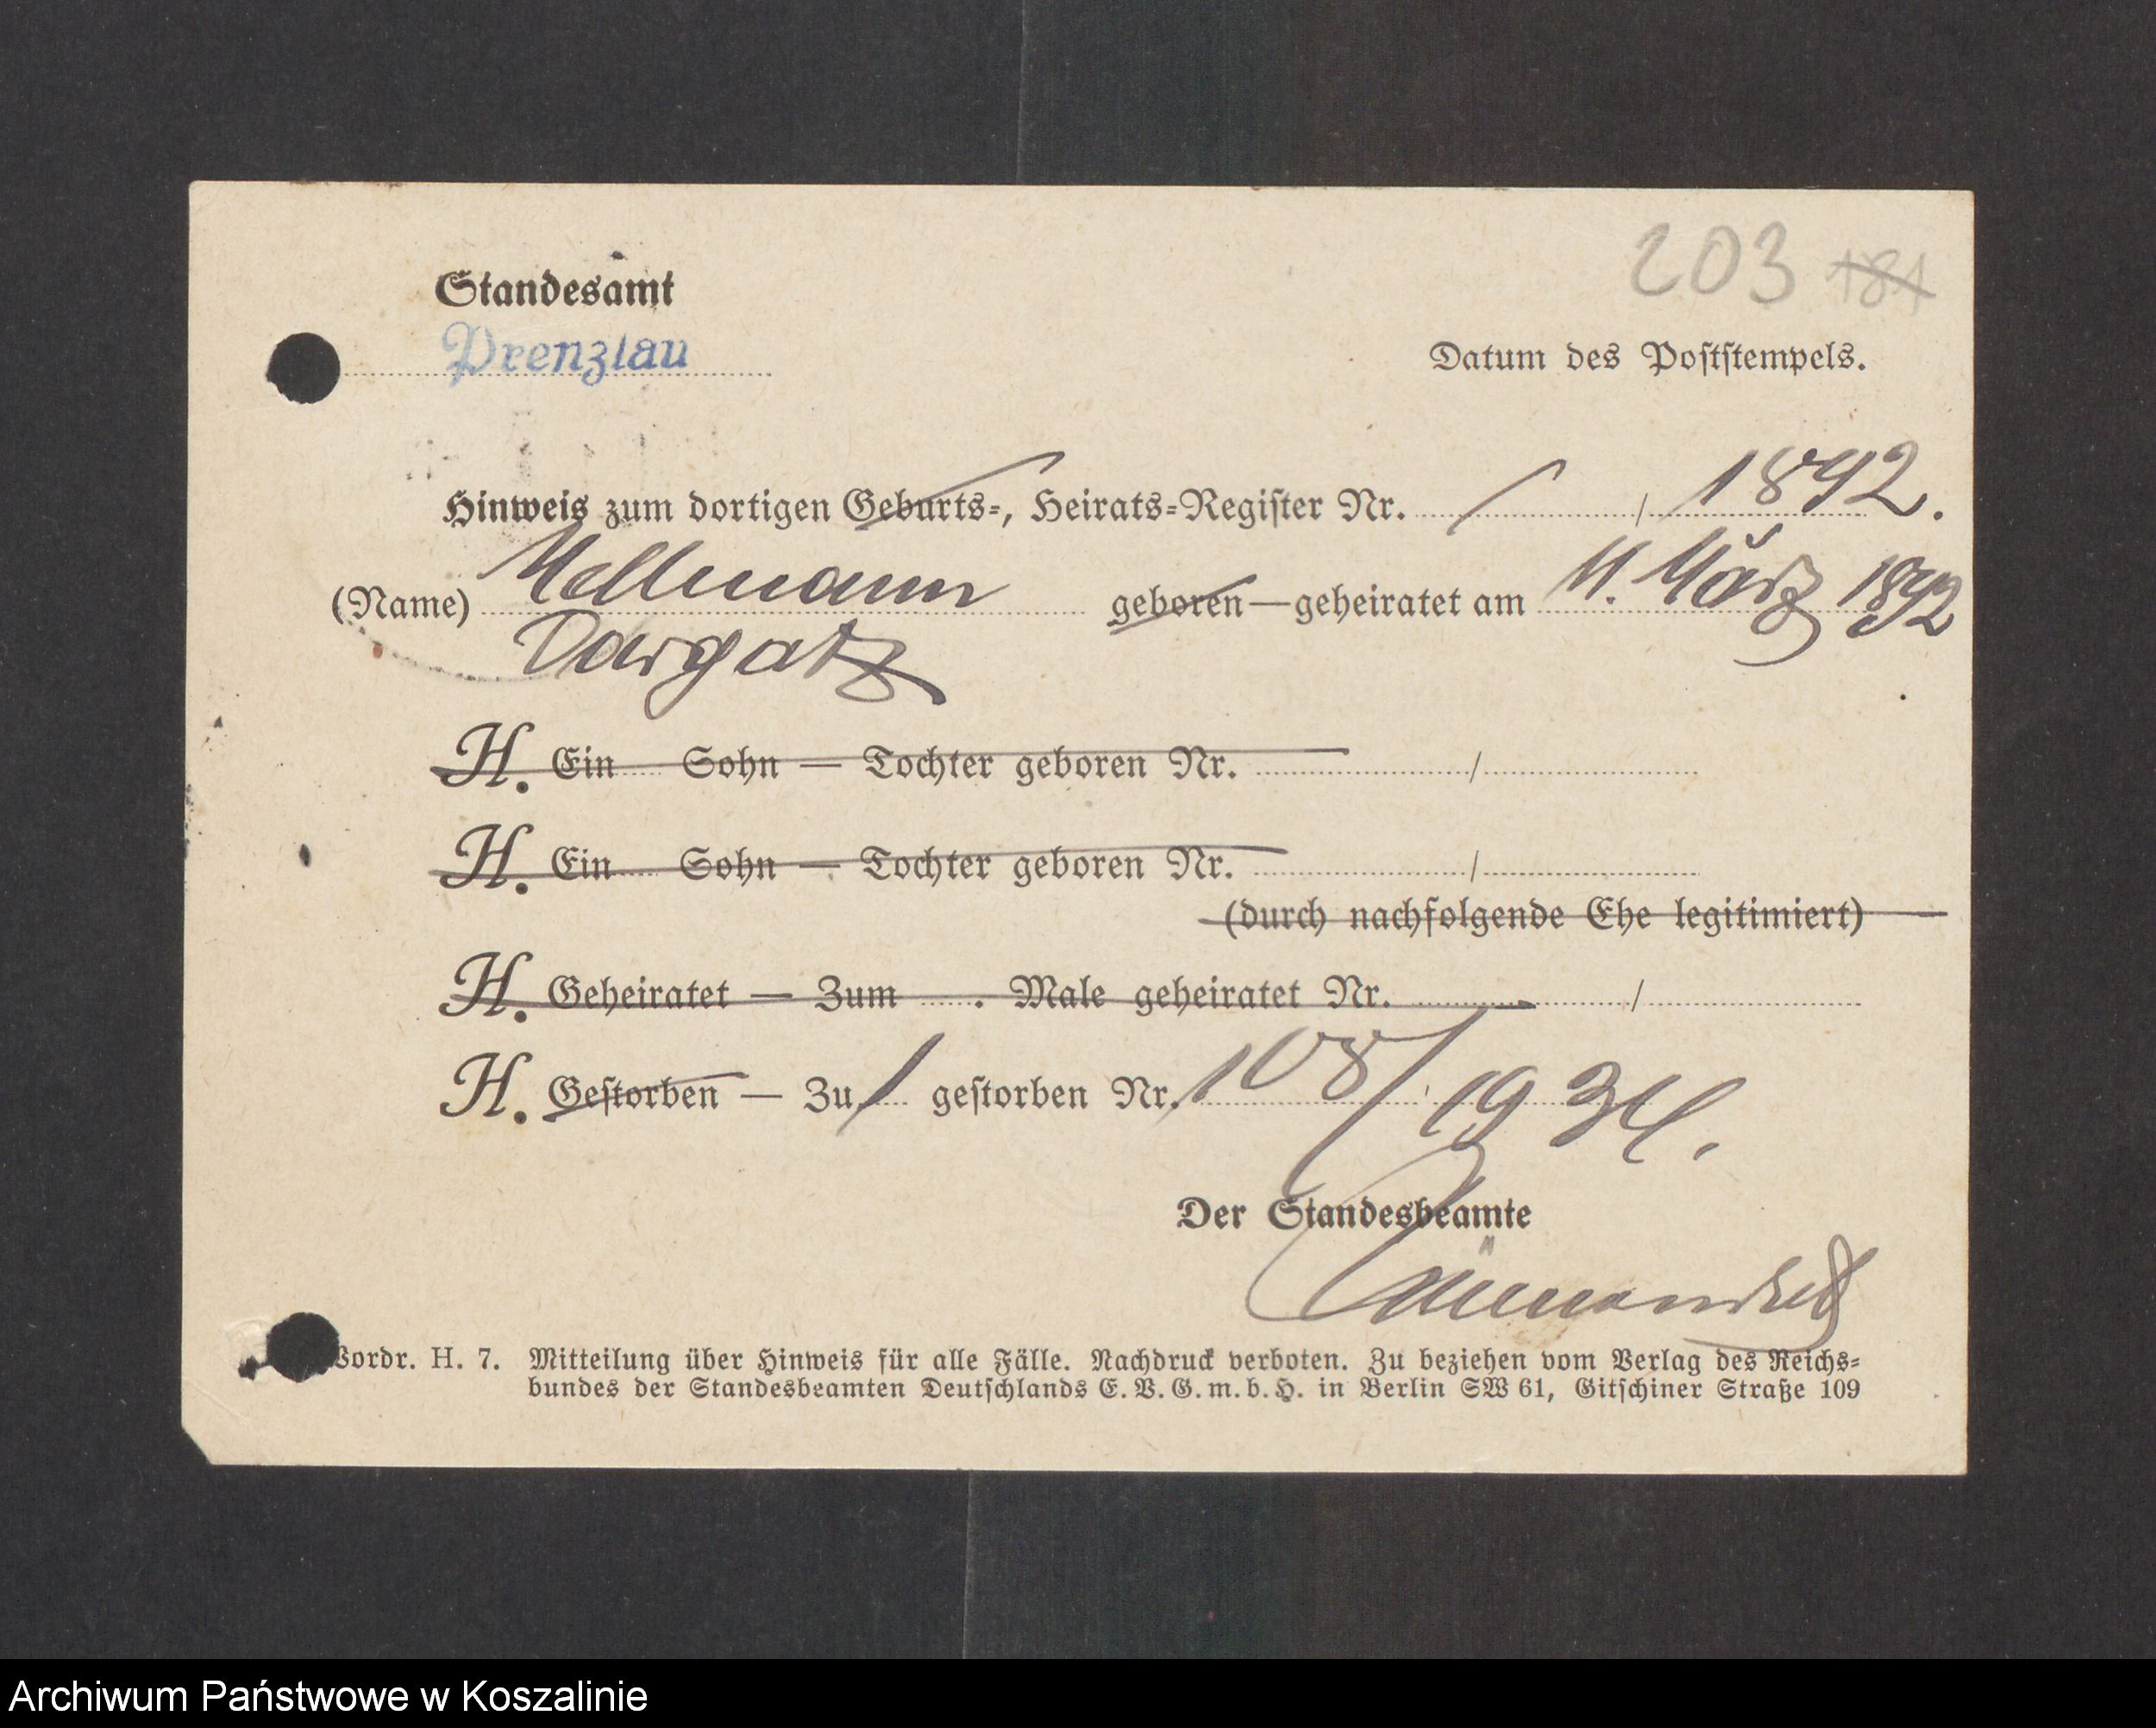 203 181
Standesamt
Prenzlau
Datum des Poststempels.
Hinweis zum dortigen Geburts-, Heirats-Register Nr. / 1892.
(Name) Mellmann geboren — geheiratet am 11. März 1892
Dargatz
H. Ein Sohn — Tochter geboren Nr. /
H. Ein Sohn — Tochter geboren Nr. /
(durch nachfolgende Ehe legitimiert)
H. Geheiratet — Zum . Male geheiratet Nr. /
H. Gestorben — Zu 1 gestorben Nr. 108/1934.
Der Standesbeamte
Vordr. H. 7. Mitteilung über Hinweis für alle Fälle. Nachdruck verboten. Zu beziehen vom Verlag des Reichs-
bundes der Standesbeamten Deutschlands E. V. G. m. b. H. in Berlin SW 61, Gitschiner Straße 109
Archiwum Państwowe w Koszalinie